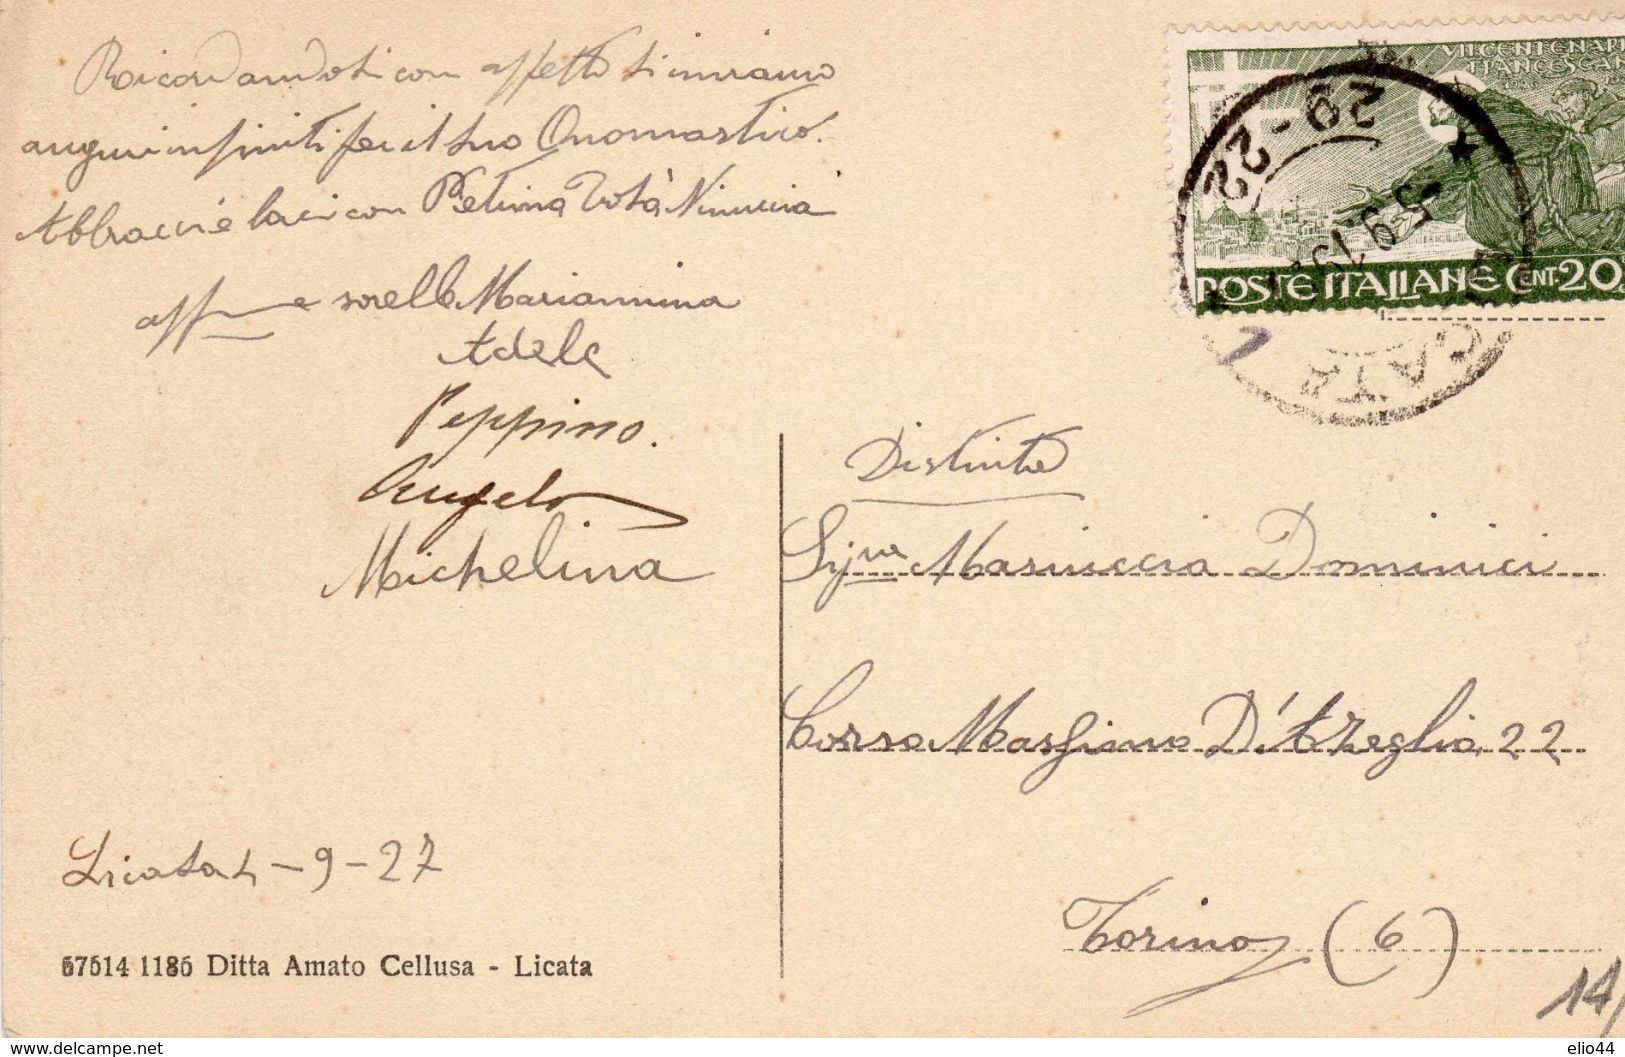 Ricordandoti con affetto ti inviamo
auguri infiniti per il tuo Onomastico.
Abbracci e baci con Betina Totà Ninuccia
aff.me sorelle Mariannina
Adele
Peppino.
Angelo
Michelina
Licata 4-9-27
57514 1185 Ditta Amato Cellusa - Licata
VII CENTENARI
FRANCESCAN
POSTE ITALIANE CENT. 20
22-29
5 9 19
CATA
Distinta
Sig.na Mariuccia Dominici
Corso Massimo D'Azeglio 22
Torino (6)
14/
elio44